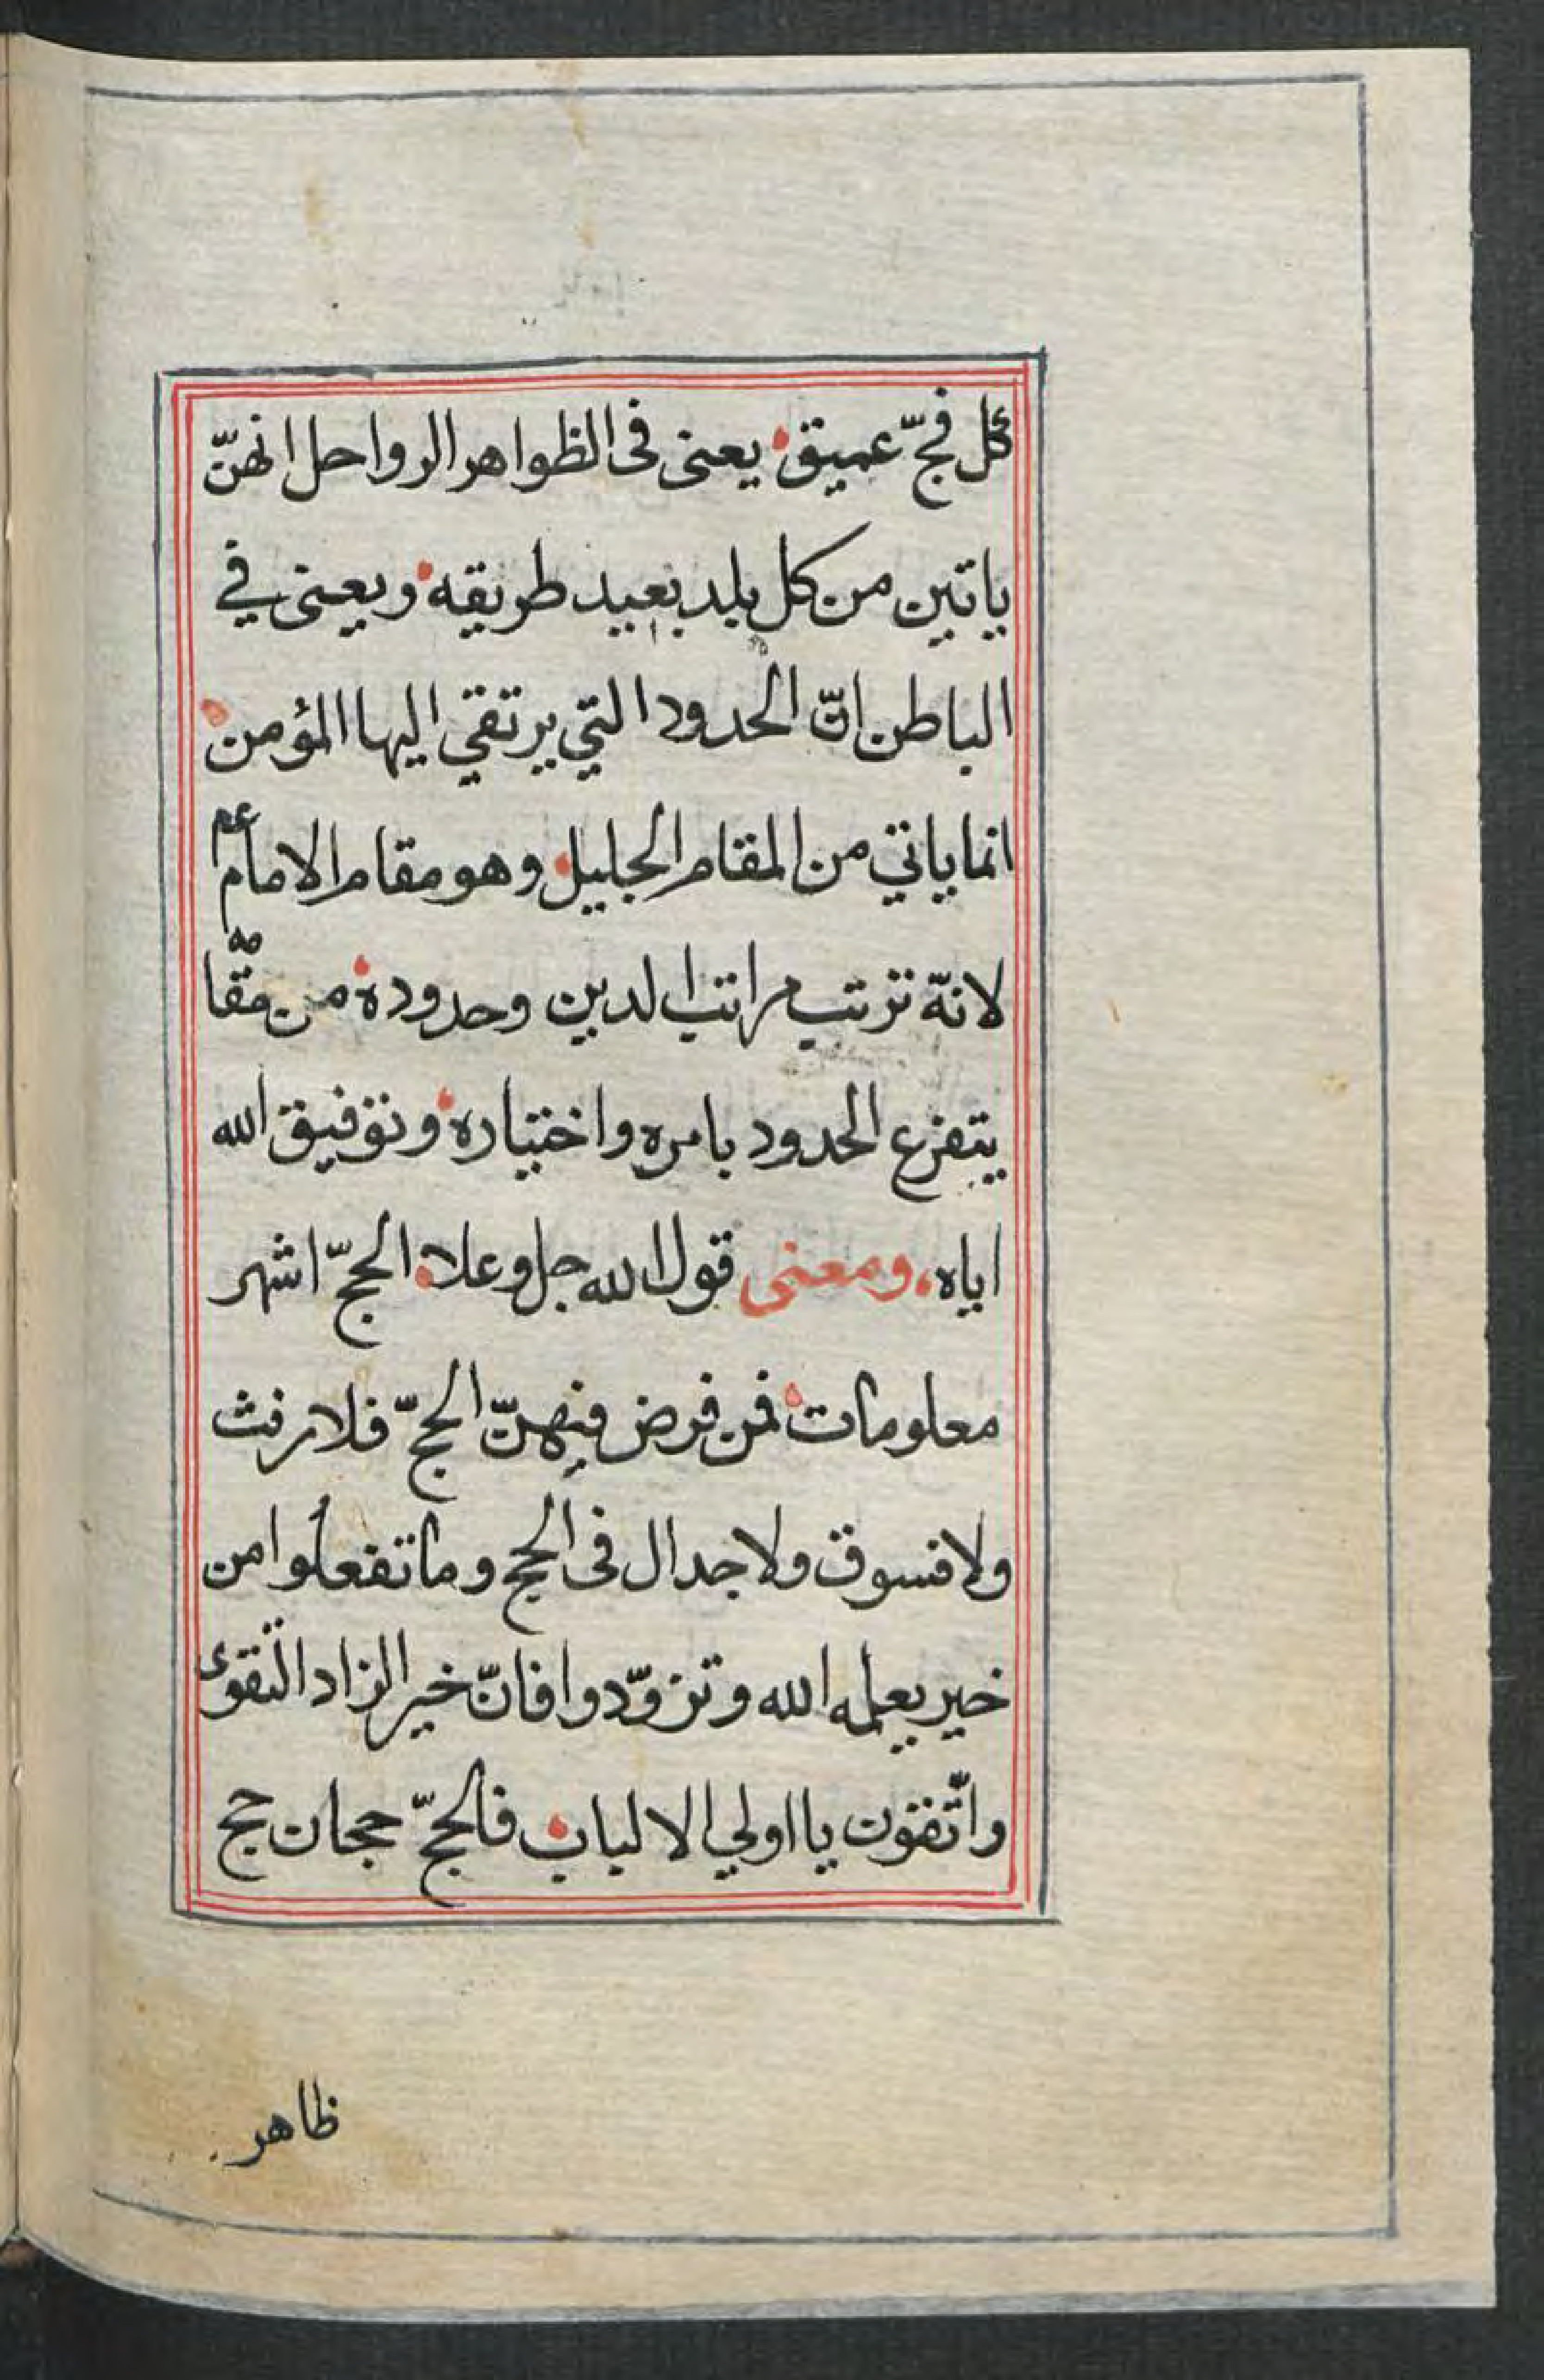 كل فجّ عميق يعني فى الظواهر الرواحل انهنّ
ياتين من كل بلد بعيد طريقه ويعنى في
الباطن انّ الحدود التي يرتقي اليها المؤمن
انما ياتي من المقام الجليل وهو مقام الامام عم
لانّه ترتب مراتب الدين وحدوده من مقامه
يتفرع الحدود بامره واختياره وتوفيق الله
اياه، ومعنى قول الله جل وعلا الحجّ اشهر
معلومات فمن فرض فيهنّ الحجّ فلا رفث
ولا فسوق ولا جدال فى الحج وما تفعلوا من
خير يعلمه الله وتزوّدوا فانّ خير الزاد التقوى
واتّقون يا اولي الالباب فالحجّ حجان حج
ظاهر